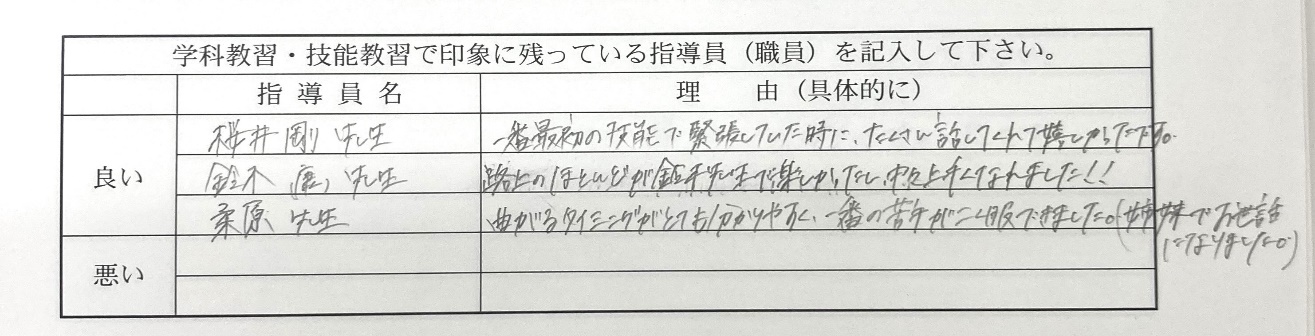 学科教習・技能教習で印象に残っている指導員（職員）を記入して下さい。
指導員名 理由（具体的に）
良い
桜井剛先生 一番最初の技能で緊張していた時に、たくさん話してくれて嬉しかったです。
鈴木 先生 路上のほとんどが鈴木先生で楽しかったし、中々上手くなれました!!
桑原先生 曲がるタイミングがとても分かりやすく、一番の苦手がこく服できました。(姉妹でお世話
になりました。)
悪い